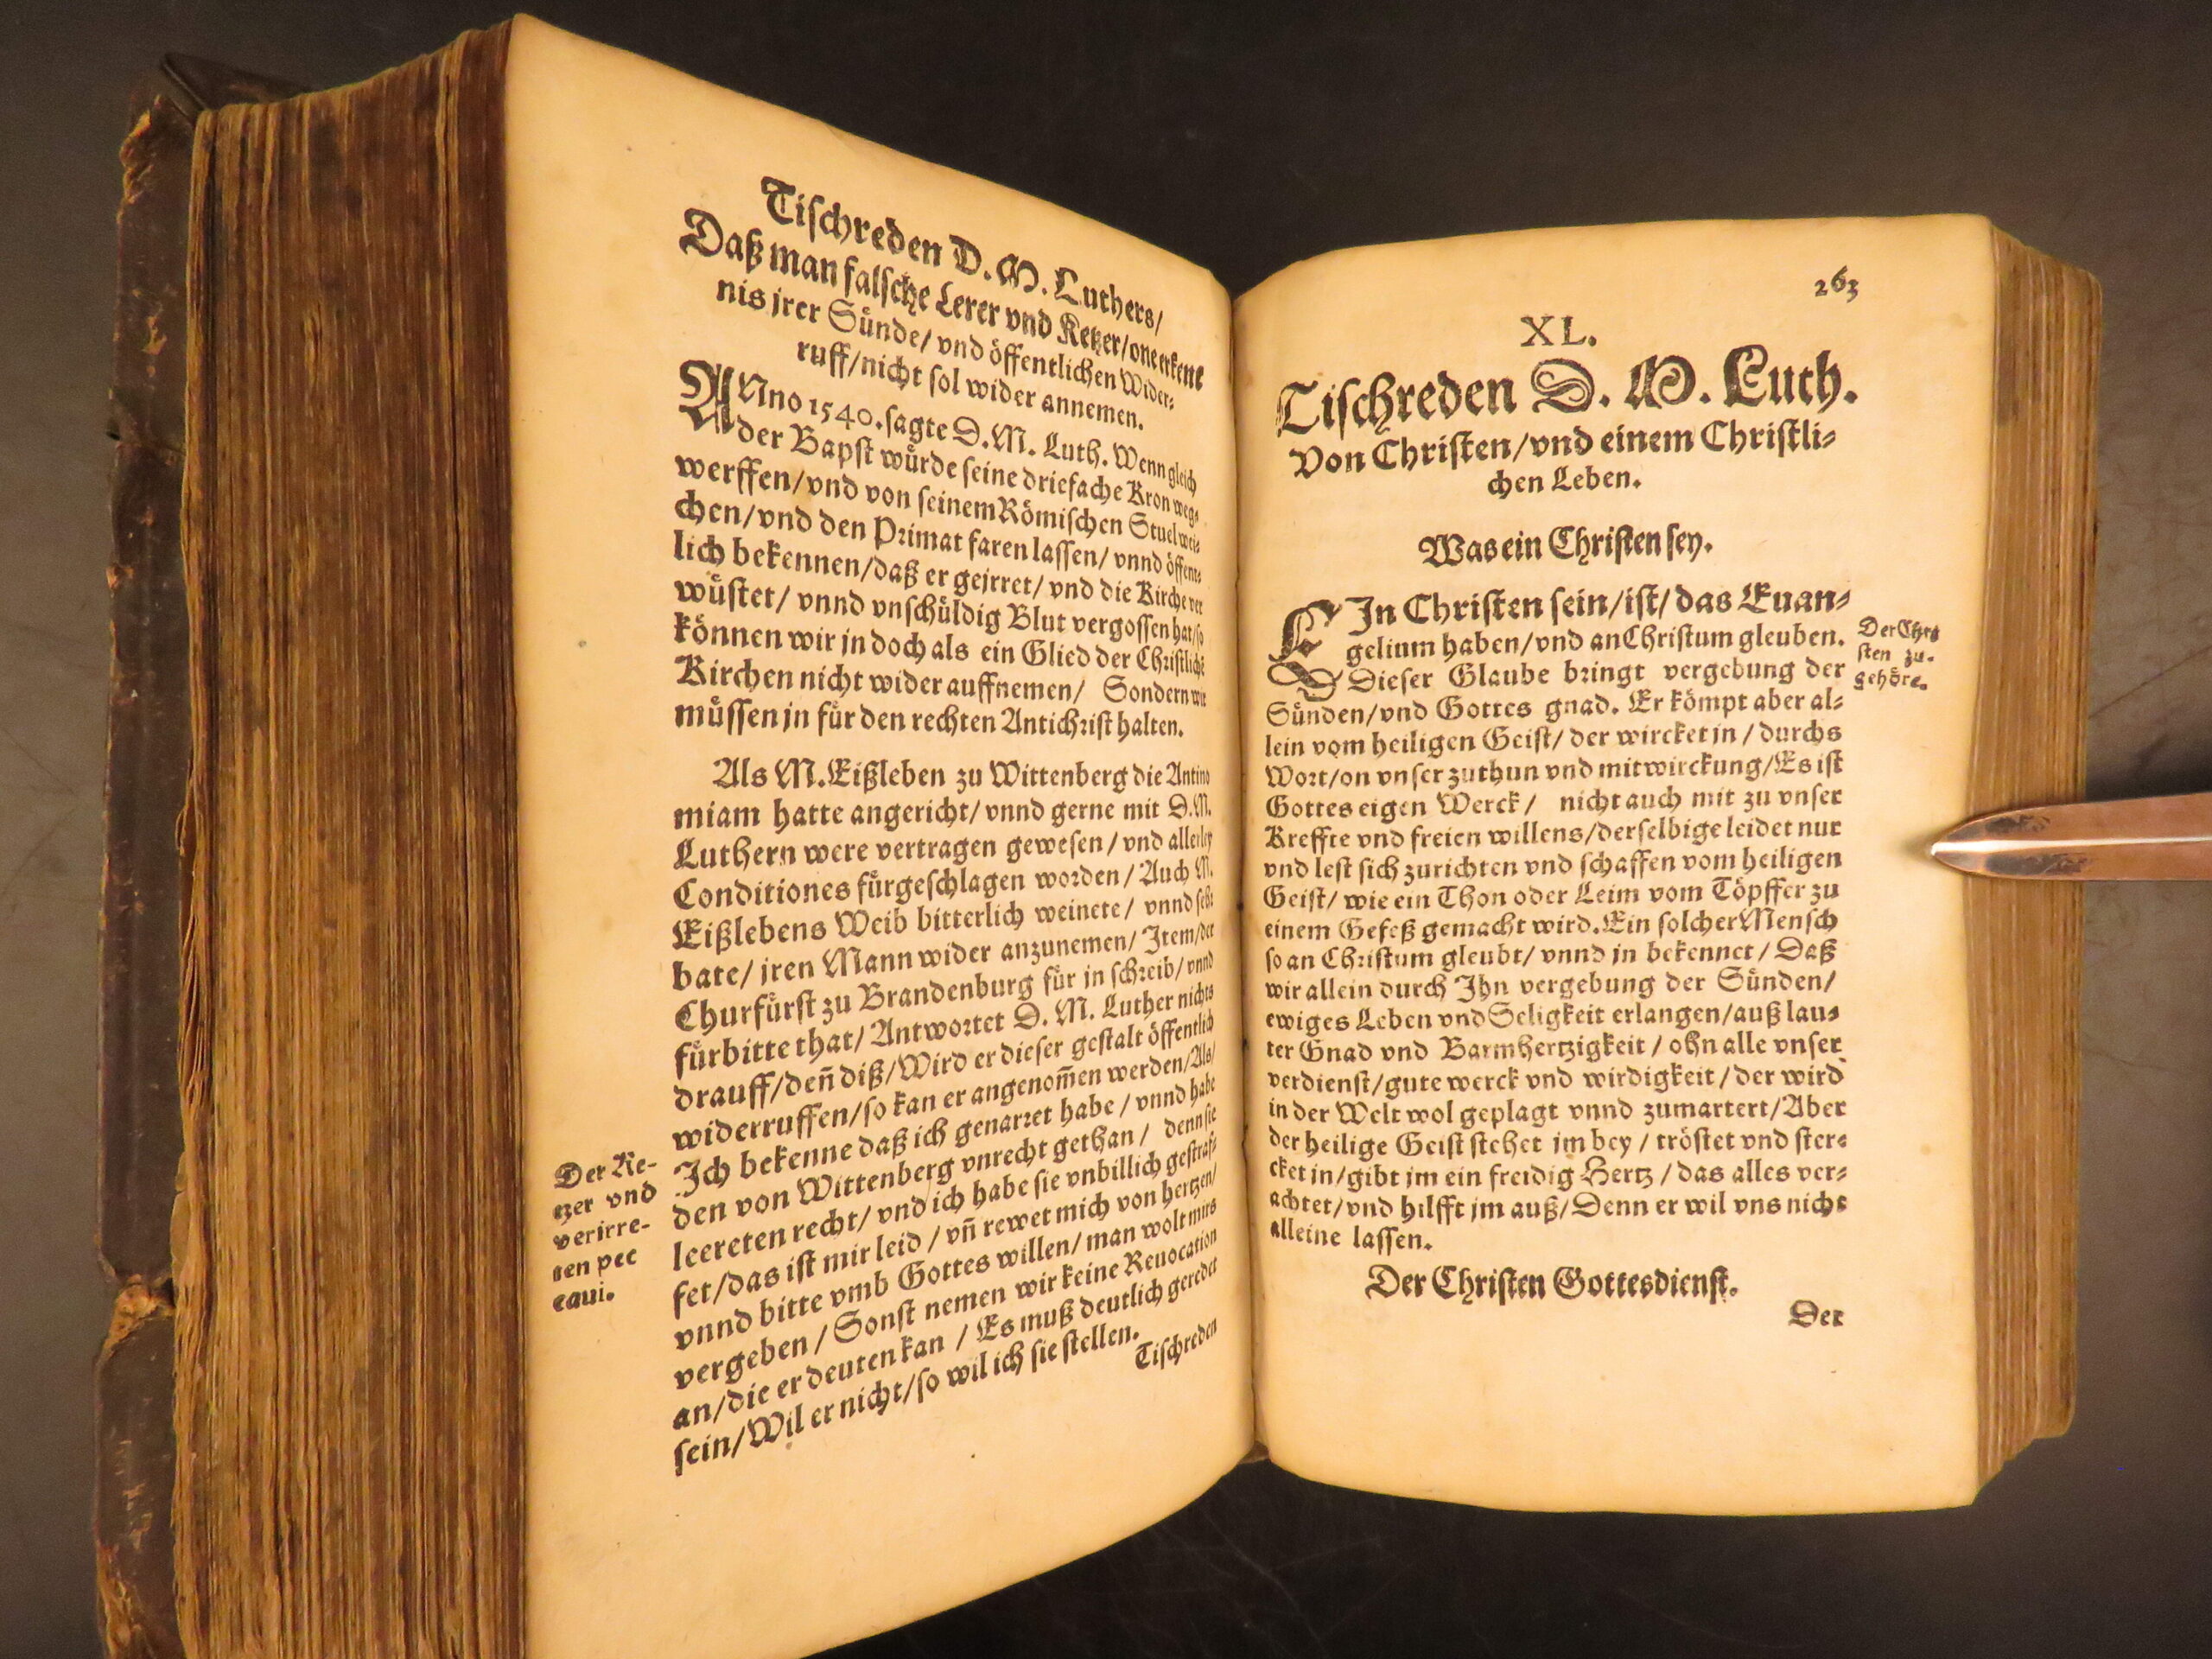 Tischreden D. M. Luthers/
Daß man falsche Lerer vnd Ketzer/one erkent
nis jrer Sünde/ vnd öffentlichen Wider-
ruff/nicht sol wider annemen.
ANno 1540. sagte D. M. Luth. Wenn gleich
der Bapst würde seine driefache Kron weg-
werffen/vnd von seinem Römischen Stuel wei-
chen/vnd den Primat faren lassen/ vnnd öffent-
lich bekennen/daß er geirret/ vnd die Kirche ver
wüstet/ vnnd vnschüldig Blut vergossen hat/so
können wir jn doch als ein Glied der Christliche
Kirchen nicht wider auffnemen/ Sondern wir
müssen jn für den rechten Antichrist halten.
Als M. Eißleben zu Wittenberg die Antino
miam hatte angericht/ vnnd gerne mit D. M.
Luthern were vertragen gewesen/ vnd allerley
Conditiones fürgeschlagen worden/ Auch M.
Eißlebens Weib bitterlich weinete/ vnnd sehr
bate/ jren Mann wider anzunemen/ Item/der
Churfürst zu Brandenburg für jn schreib/ vnnd
fürbitte that/ Antwortet D. M. Luther nichts
drauff/deñ diß/Wird er dieser gestalt öffentlich
widerruffen/so kan er angenom̃en werden/Als/
Ich bekenne daß ich genarret habe/ vnnd habe
den von Wittenberg vnrecht gethan/ denn sie
leereten recht/ vnd ich habe sie vnbillich gestraf-
fet/das ist mir leid/ vñ rewet mich von hertzen/
vnnd bitte vmb Gottes willen/ man wolt mirs
vergeben/ Sonst nemen wir keine Reuocation
an/die er deuten kan/ Es muß deutlich geredet
sein/Wil er nicht/so wil ich sie stellen.
Tischreden
Der Ke-
tzer vnd
verirre-
ten pec
caui.
263
XL.
Tischreden D. M. Luth.
Von Christen/vnd einem Christli-
chen Leben.
Was ein Christen sey.
EIn Christen sein/ist/das Euan-
gelium haben/vnd an Christum gleuben.
Dieser Glaube bringt vergebung der
Sünden/vnd Gottes gnad. Er kömpt aber al-
lein vom heiligen Geist/ der wircket jn/ durchs
Wort/on vnser zuthun vnd mitwirckung/Es ist
Gottes eigen Werck/ nicht auch mit zu vnser
Kreffte vnd freien willens/derselbige leidet nur
vnd lest sich zurichten vnd schaffen vom heiligen
Geist/ wie ein Thon oder Leim vom Töpffer zu
einem Gefeß gemacht wird. Ein solcher Mensch
so an Christum gleubt/ vnnd jn bekennet/ Daß
wir allein durch Ihn vergebung der Sünden/
ewiges Leben vnd Seligkeit erlangen/auß lau-
ter Gnad vnd Barmhertzigkeit/ ohn alle vnser
verdienst/gute werck vnd wirdigkeit/der wird
in der Welt wol geplagt vnnd zumartert/Aber
der heilige Geist stehet jm bey/ tröstet vnd ster-
cket jn/gibt jm ein freidig Hertz/das alles ver-
achtet/vnd hilfft jm auß/Denn er wil vns nicht
alleine lassen.
Der Chri
sten zu-
gehöre.
Der Christen Gottesdienst.
Der